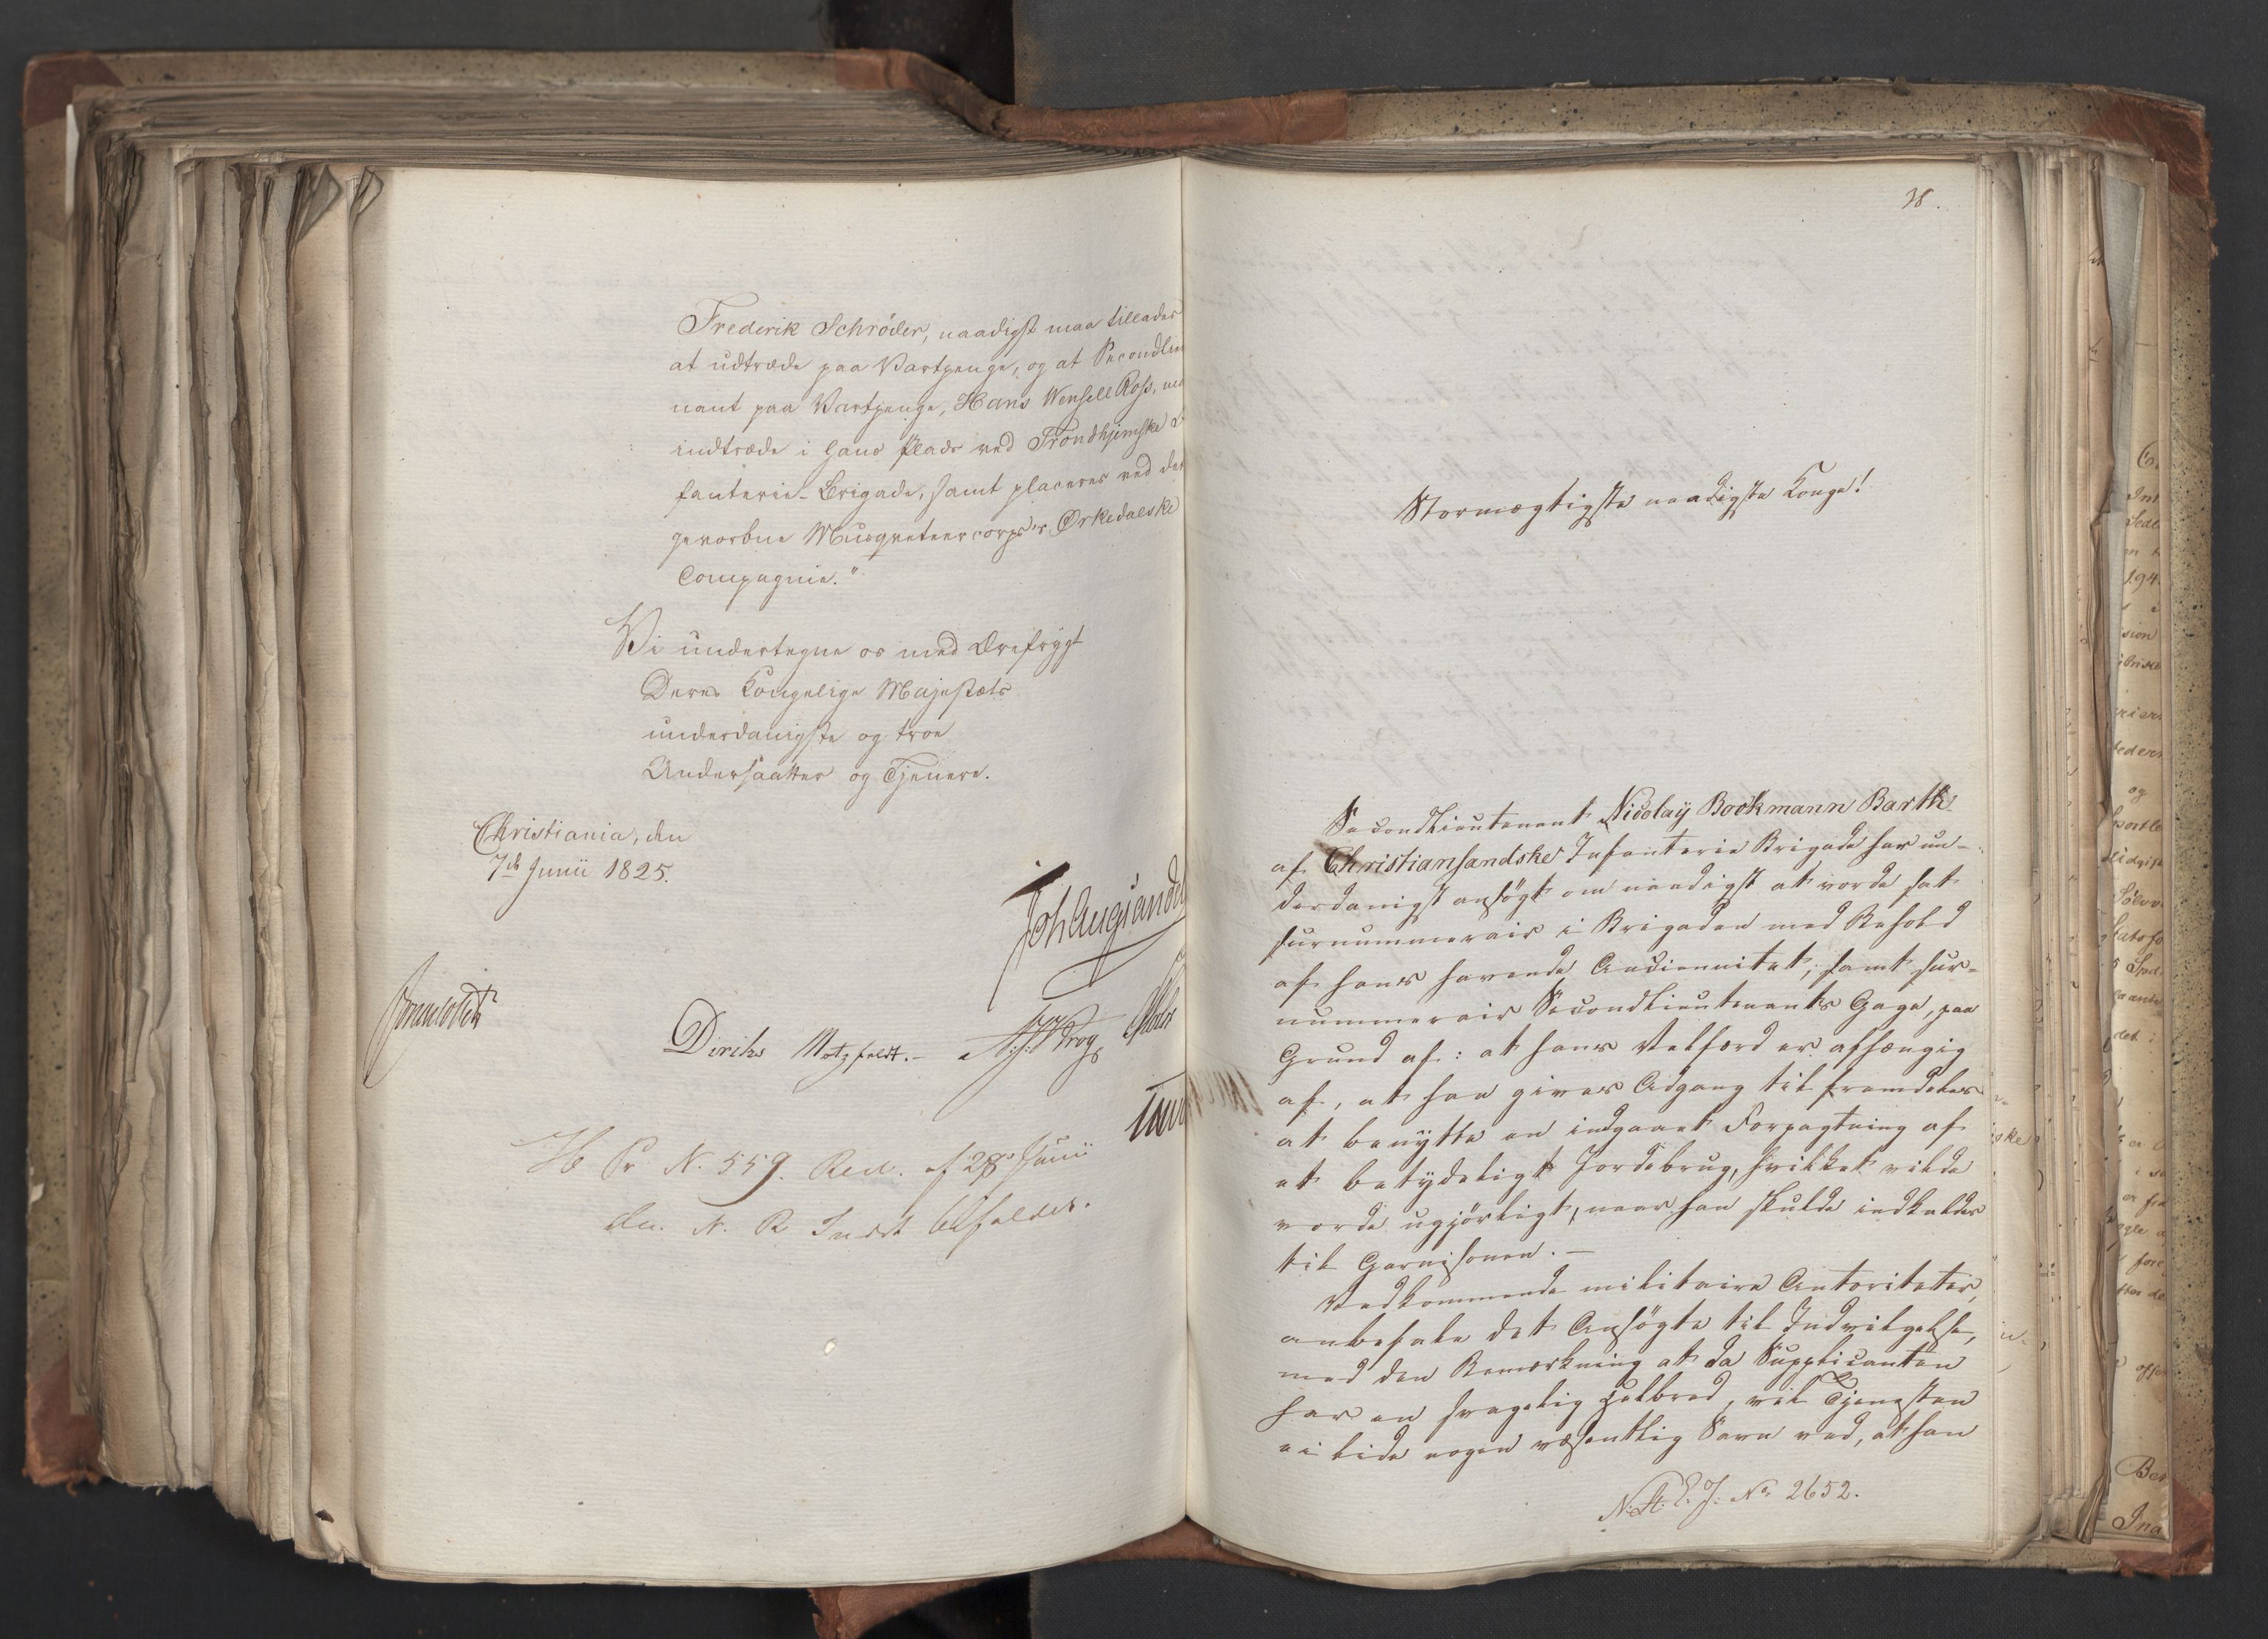 Frederik Schröder, naadigst maa tillades
at udtræde paa Vartpenge, og at Secondlieu
nant paa Vartpenge, Hans Wensell Ross, maa
indtræde i hans Plads ved Trondhjemske In
fanterie-Brigade, samt placeres ved det
gevorbne Musqueteercorps's Ørkedalske
Compagnie."
Vi undertegne os med Ærefrygt
Deres Kongelige Majestæts
underdanigste og troe
Undersaatter og Tjenere.
Christiania, den
7de Junii 1825.
Joh Aug Sandels
Diriks Motzfeldt.- Krog
H Pr N. 559. Res. af 28de Junii
N. R Indst bifaldes.
38.
Stormægtigste naadigste Konge!
Secondlieutenant Nicolaÿ Bockmann Barth
af Christiansandske Infanterie Brigade har un-
derdanigst ansögt om naadigst at vorde sat
surnummerair i Brigaden med Behold
af hans havende Anciennitet, samt sur-
nummerair Secondlieutenants Gage, paa
Grund af: at hans Velfærd er afhængig
af, at han gives Adgang til fremdeles
at benÿtte en indgaaet Forpagtning af
et betÿdeligt Jordebrug, hvilket vilde
vorde ugjörligt, naar han skulde indkaldes
til Garnisonen.-
Vedkommende militaire Autoriteter,
anbefale det Ansögte til Indvilgelse,
med den Bemærkning at da Supplicanten
har en svagelig Helbred, vil Tjenesten
ei lide nogen væsentlig Savn ved, at han
N. A. E. J. No 2652.